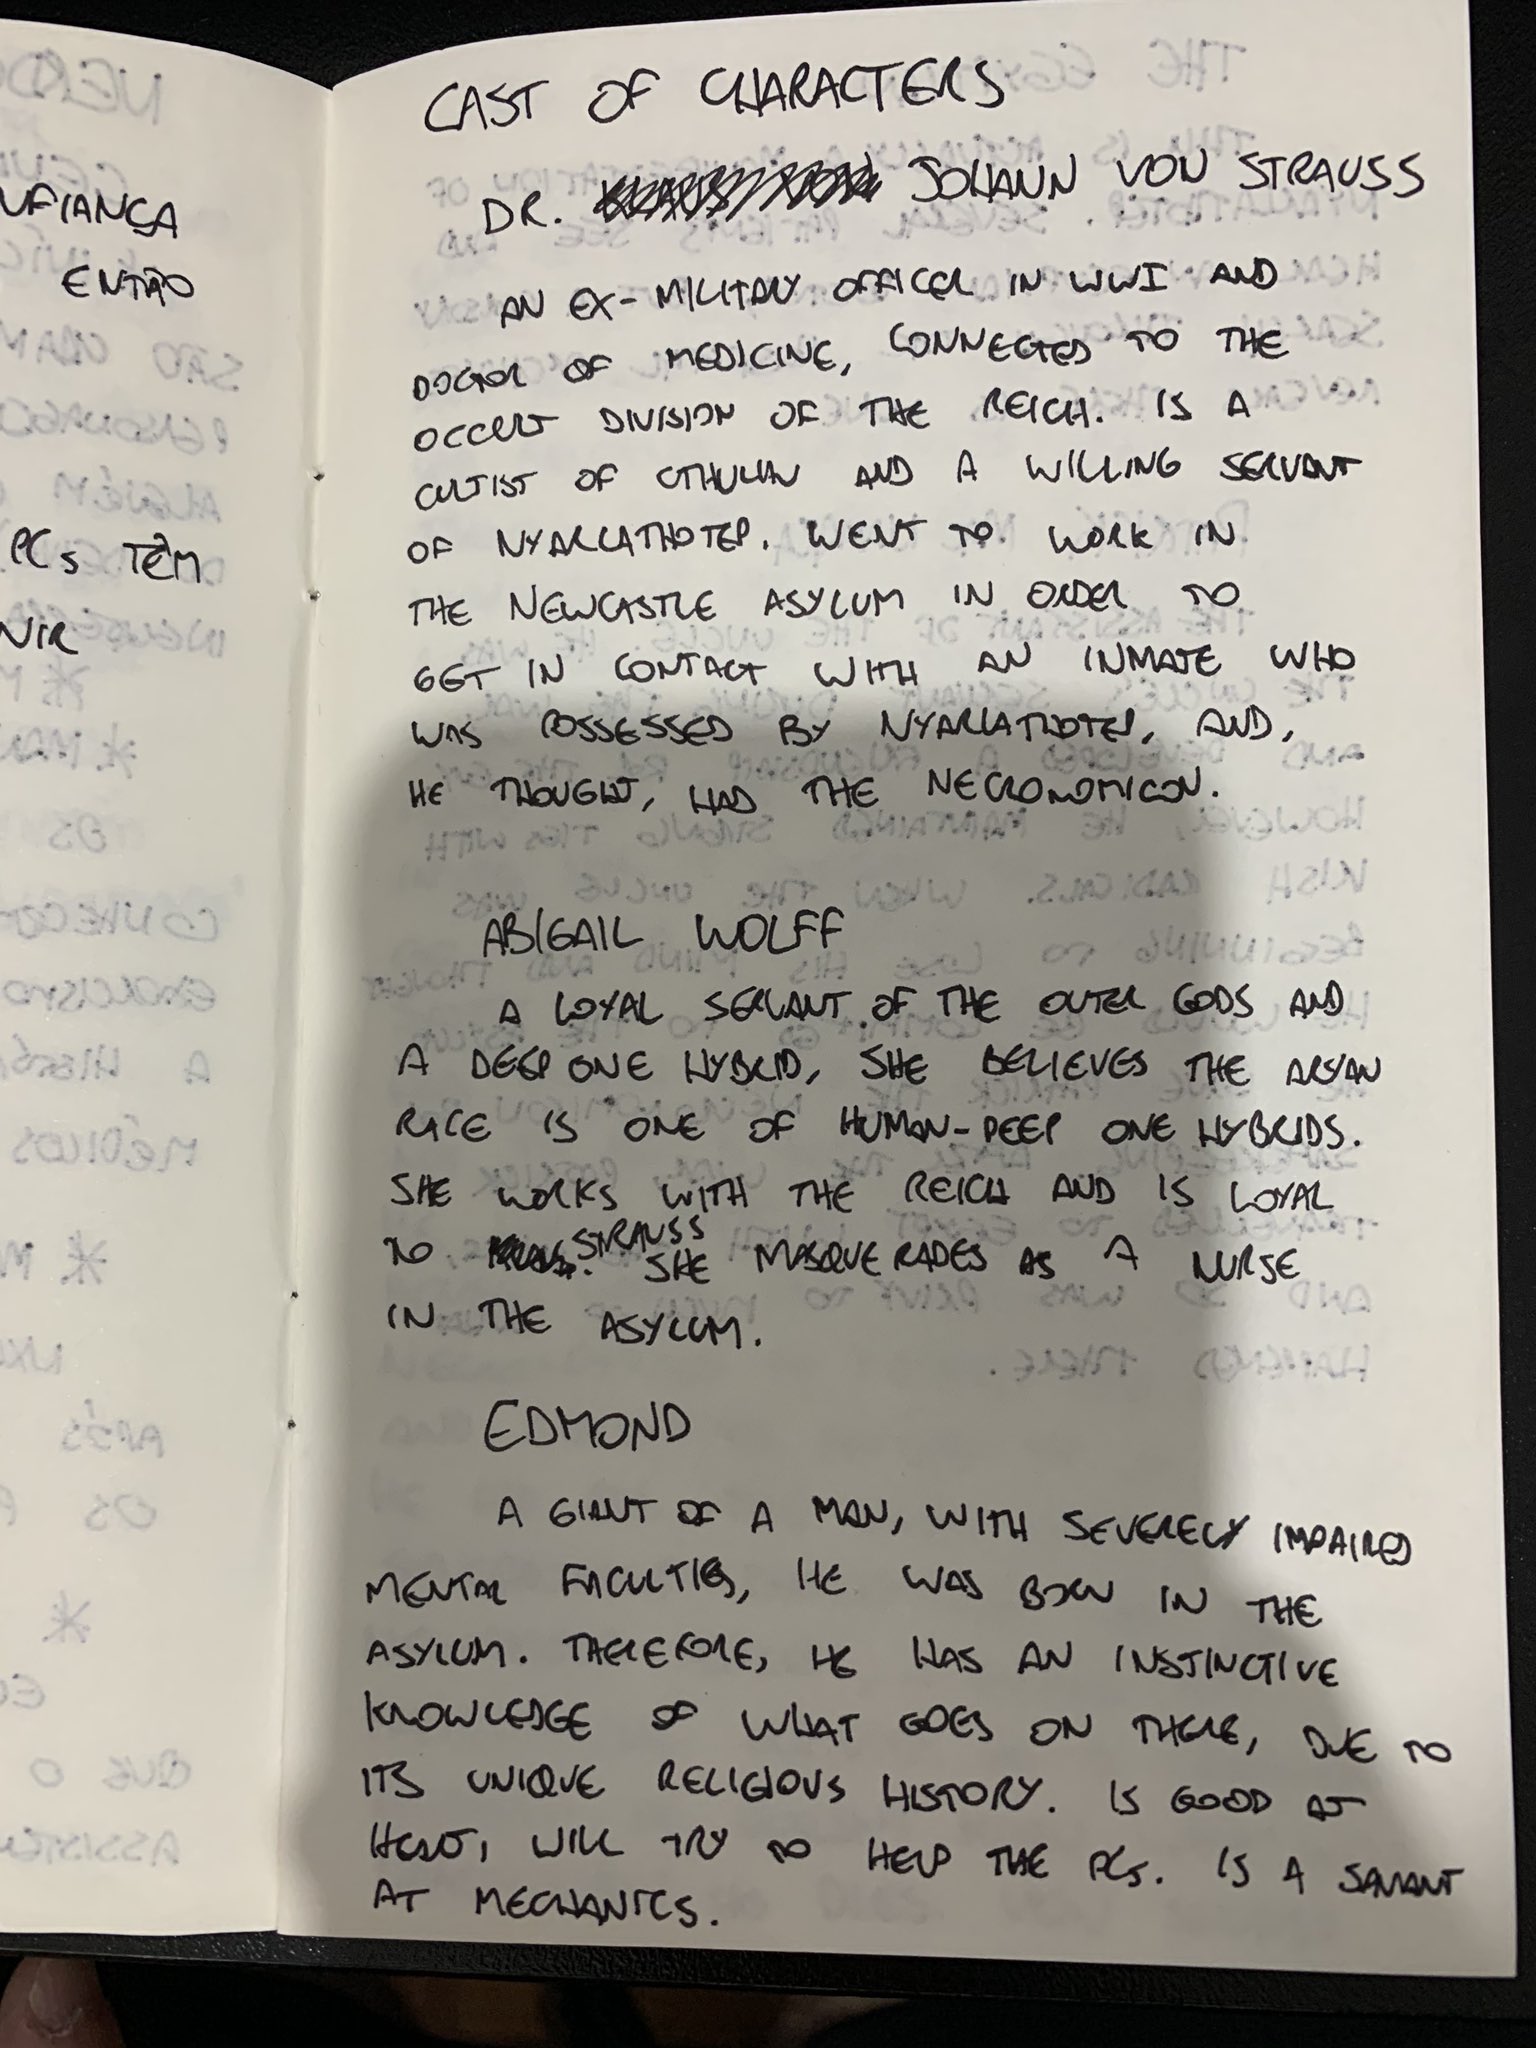 UFIANÇA
ENTÃO
PCs TÊM
NIR
CAST OF CHARACTERS
DR. JOHANN VON STRAUSS
AN EX-MILITARY OFFICER IN WWI AND
DOCTOR OF MEDICINE, CONNECTED TO THE
OCCULT DIVISION OF THE REICH. IS A
CULTIST OF CTHULHU AND A WILLING SERVANT
OF NYARLATHOTEP. WENT TO WORK IN
THE NEWCASTLE ASYLUM IN ORDER TO
GET IN CONTACT WITH AN INMATE WHO
WAS POSSESSED BY NYARLATHOTEP, AND,
HE THOUGHT, HAD THE NECRONOMICON.
ABIGAIL WOLFF
A LOYAL SERVANT OF THE OUTER GODS AND
A DEEP ONE HYBRID, SHE BELIEVES THE ARYAN
RACE IS ONE OF HUMAN-DEEP ONE HYBRIDS.
SHE WORKS WITH THE REICH AND IS LOYAL
TO STRAUSS. SHE MASQUERADES AS A NURSE
IN THE ASYLUM.
EDMOND
A GIANT OF A MAN, WITH SEVERELY IMPAIRED
MENTAL FACULTIES, HE WAS BORN IN THE
ASYLUM. THEREFORE, HE HAS AN INSTINCTIVE
KNOWLEDGE OF WHAT GOES ON THERE, DUE TO
ITS UNIQUE RELIGIOUS HISTORY. IS GOOD AT
HEART, WILL TRY TO HELP THE PCs. IS A SAVANT
AT MECHANICS.